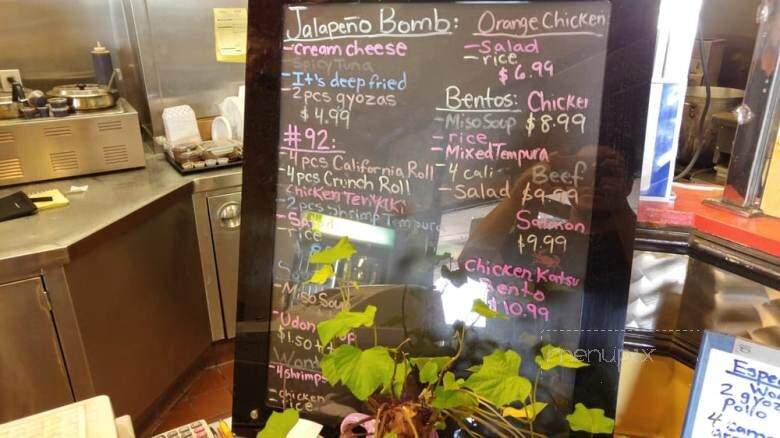 Jalapeño Bomb:
-Cream cheese
SpicyTuna
-It's deep fried
-2pcs gyozas
$4.99
#92:
-4 pcs California Roll
-4pcs Crunch Roll
Chicken Teriyaki
-2pcs Shrimp Tempura
-rice
-Miso Soup
-Udon
$1.50+
-4shrimps
-chicken
rice
Orange Chicken
-Salad
-rice
$6.99
Bentos: Chicken
-Miso Soup $8.99
-rice
-Mixed Tempura
-4 cali Beef
-Salad $9.99
Salmon
$9.99
Chicken Katsu
Bento
$10.99
menupix
2 gyo
Pollo
4